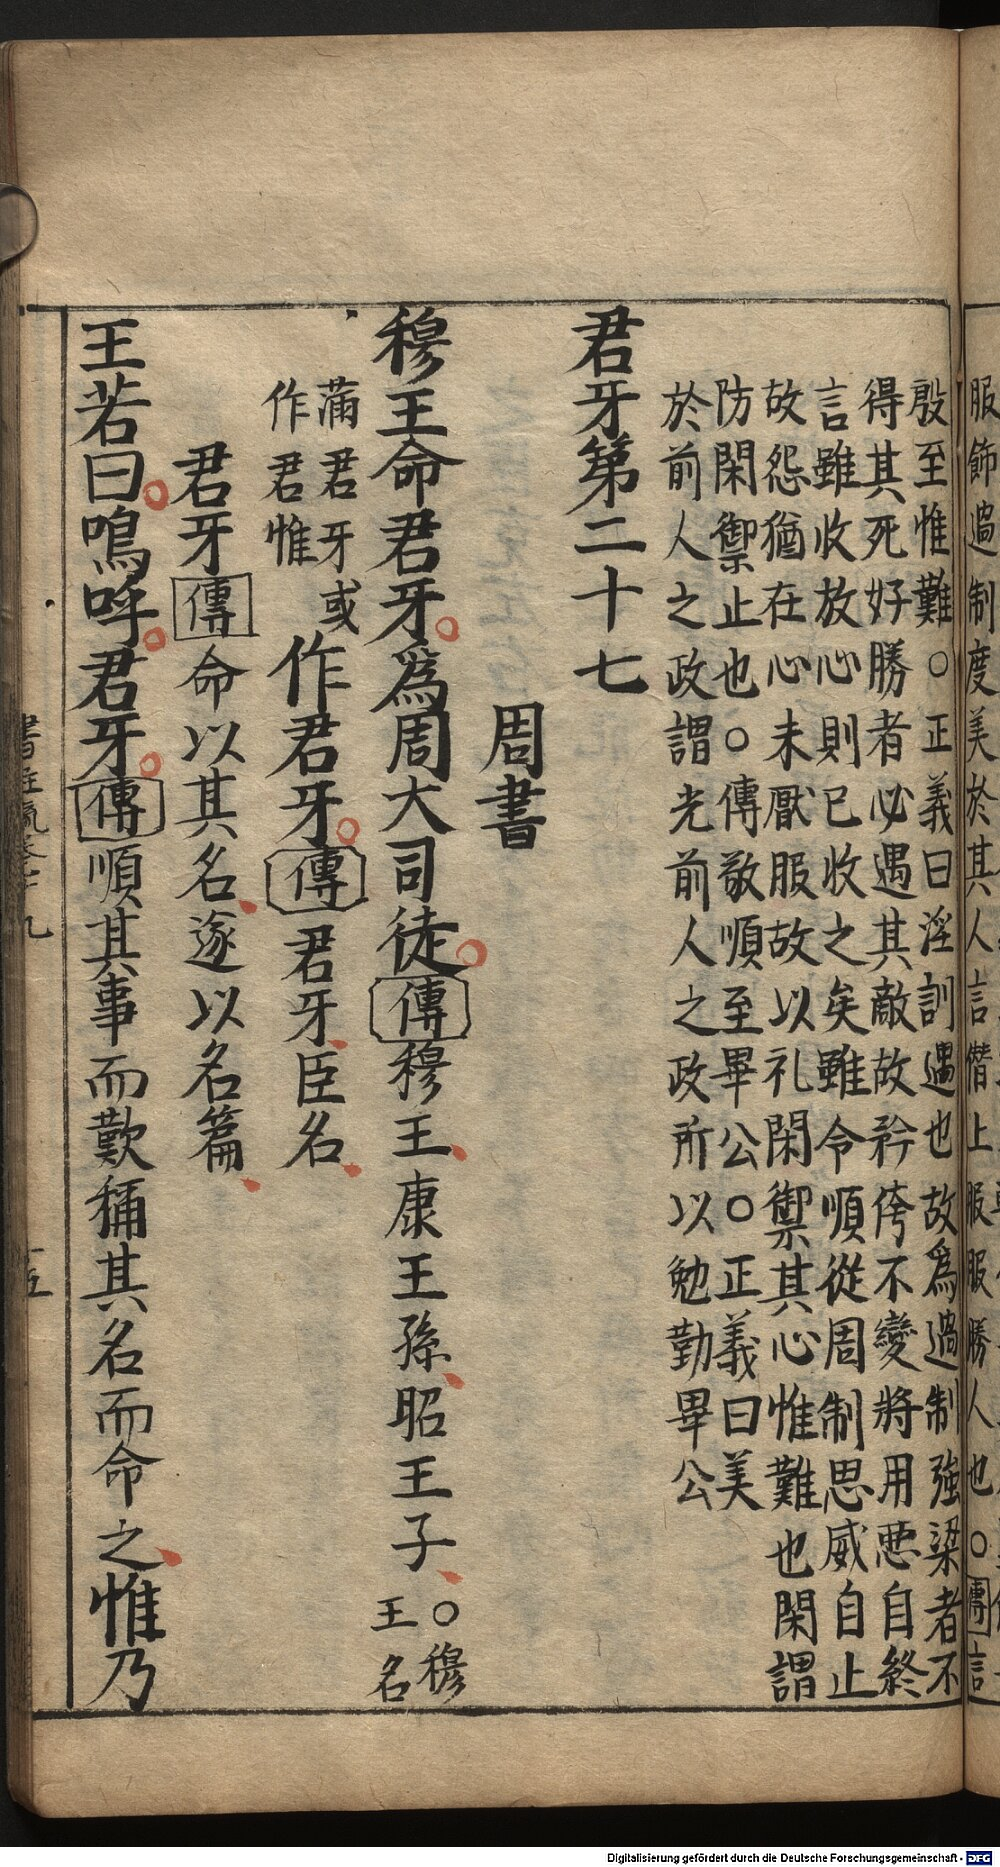 服飾過制度美於其人言僭上服服勝人也○傳言
殷至惟難○正義曰淫訓過也故為過制強梁者不
得其死好勝者必遇其敵故矜侉不變將用惡自終
言雖收放心則已收之矣雖今順從周制思威自止
故怨猶在心未厭服故以礼閑禦其心惟難也閑謂
防閑禦止也○傳敬順至畢公○正義曰美
於前人之政謂光前人之政所以勉勤畢公
君牙第二十七
周書
穆王命君牙爲周大司徒傳穆王康王孫昭王子○穆
王名
滿君牙或
作君惟
作君牙傳君牙臣名
君牙傳命以其名遂以名篇
王若曰嗚呼君牙傳順其事而歎稱其名而命之惟乃
書注疏卷十九
十五
Digitalisierung gefördert durch die Deutsche Forschungsgemeinschaft - DFG